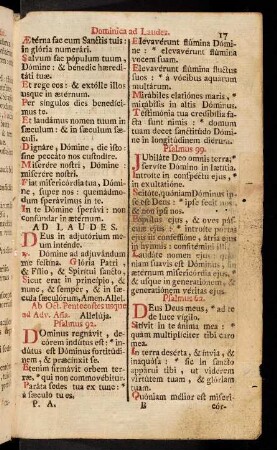 Dominica ad Laudes. 17
Ætérna fac cum Sanctis tuis: in glória numerári.
Salvum fac pópulum tuum, Dómine: & bénedic hæreditáti tuæ.
Et rege eos: & extólle illos usque in ætérnum.
Per síngulos dies benedícimus te.
Et laudámus nomen tuum in sæculum: & in sæculum sæculi.
Dignáre, Dómine, die isto: sine peccáto nos custodíre.
Miserére nostri, Dómine: miserére nostri.
Fiat misericórdia tua, Dómine, super nos: quemádmodum sperávimus in te.
In te Dómine sperávi: non confúndar in ætérnum.
AD LAUDES.
Deus in adjutórium meum inténde.
Dómine ad adjuvándum me festína. Glória Patri, & Fílio, & Spirítui sancto,
Sicut erat in princípio, & nunc, & semper, & in sæcula sæculórum, Amen. Allel.
Ab Oct. Pentecostes usque ad Adv. Aña. Allelúja.
Psalmus 92.
Dominus regnávit, decórem indútus est: * indútus est Dóminus fortitúdinem, & præcínxit se.
Etenim firmávit orbem terræ: * qui non commovébitur.
Paráta sedes tua ex tunc: * à sæculo tu es.
P. A.
Elevavérunt flúmina Dómine: * elevavérunt flúmina vocem suam.
Elevavérunt flúmina fluctus suos: * à vócibus aquárum multárum.
Mirábiles elatiónes maris, * mirábilis in altis Dóminus.
Testimónia tua credibília facta sunt nimis: * domum tuam decet sanctitúdo Dómine in longitúdinem diérum.
Psalmus 99.
Jubiláte Deo omnis terra: * servíte Dómino in lætítia.
Introíte in conspéctu ejus, * in exultatióne.
Scitóte, quóniam Dóminus ipse est Deus: * ipse fecit nos, & non ipsi nos.
Pópulus ejus, & oves páscuæ ejus: * introíte portas ejus in confessióne, átria ejus in hymnis: confitémini illi.
Laudáte nomen ejus: quóniam suávis est Dóminus, in ætérnum misericórdia ejus, * & usque in generatiónem, & generatiónem véritas ejus.
Psalmus 62.
Deus Deus meus, * ad te de luce vígilo.
Sitívit in te ánima mea: * quàm multiplíciter tibi caro mea.
In terra desérta, & ínvia, & inaquósa: * sic in sancto appárui tibi, ut vidérem virtútem tuam, & glóriam tuam.
Quóniam mélior est miseri-
B cór-